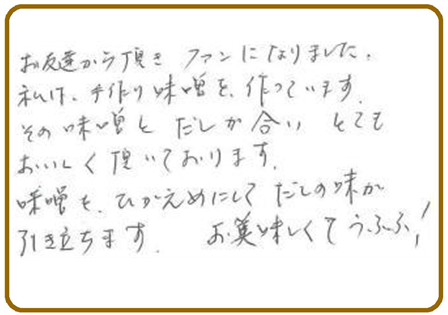 お友達から頂き ファンになりました.
私は、手作り味噌を、作っています.
その味噌と だしが合い とても
おいしく頂いております.
味噌を、ひかえめにして だしの味が
引き立ちます. お美味しくて うふふ!